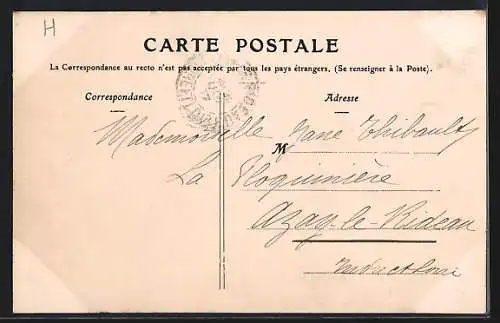 H
CARTE POSTALE
La Correspondance au recto n'est pas acceptée par tous les pays étrangers. (Se renseigner à la Poste).
Correspondance
Adresse
Mademoiselle Thibault
M
La Ploquinière
Azay-le-Rideau
Indre et Loire